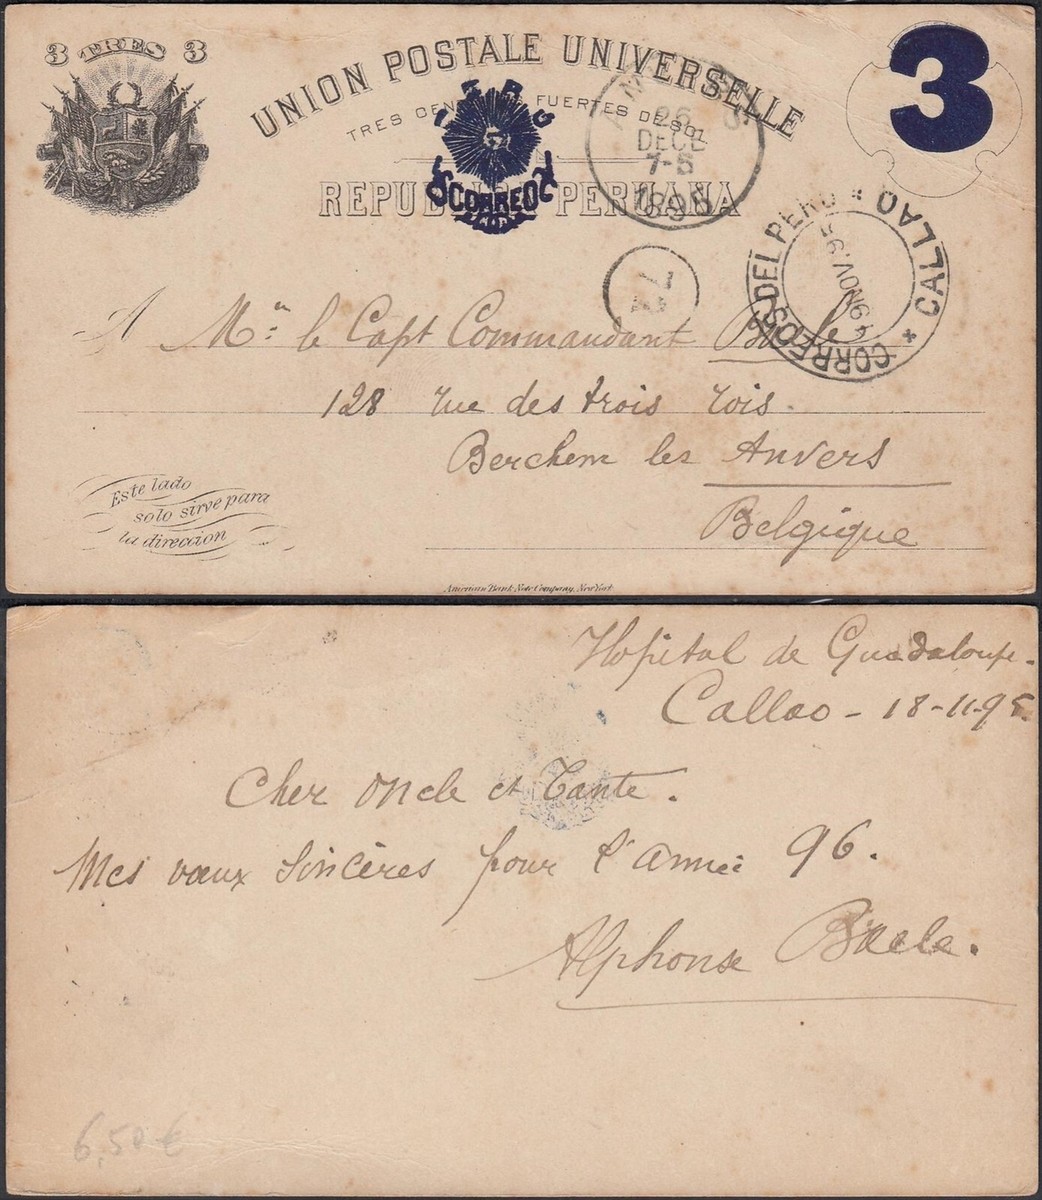 3 TRES 3
UNION POSTALE UNIVERSELLE
3
TRES FUERTES DE SOL
REPUBLICA PERUANA
CORREOS
26
DECE
7-S
1895
CORREOS DEL PERU * CALLAO *
19 NOV. 95
A Mr le Capt Commandant Baele
128 rue des trois rois.
Berchem les Anvers
Belgique
Este lado
solo sirve para
la direccion
American Bank Note Company, New York
Hopital de Guadaloupe.
Callao - 18-11-95
Cher Oncle et Tante.
Mes vœux sincères pour l'année 96.
Alphonse Baele.
6,50 €